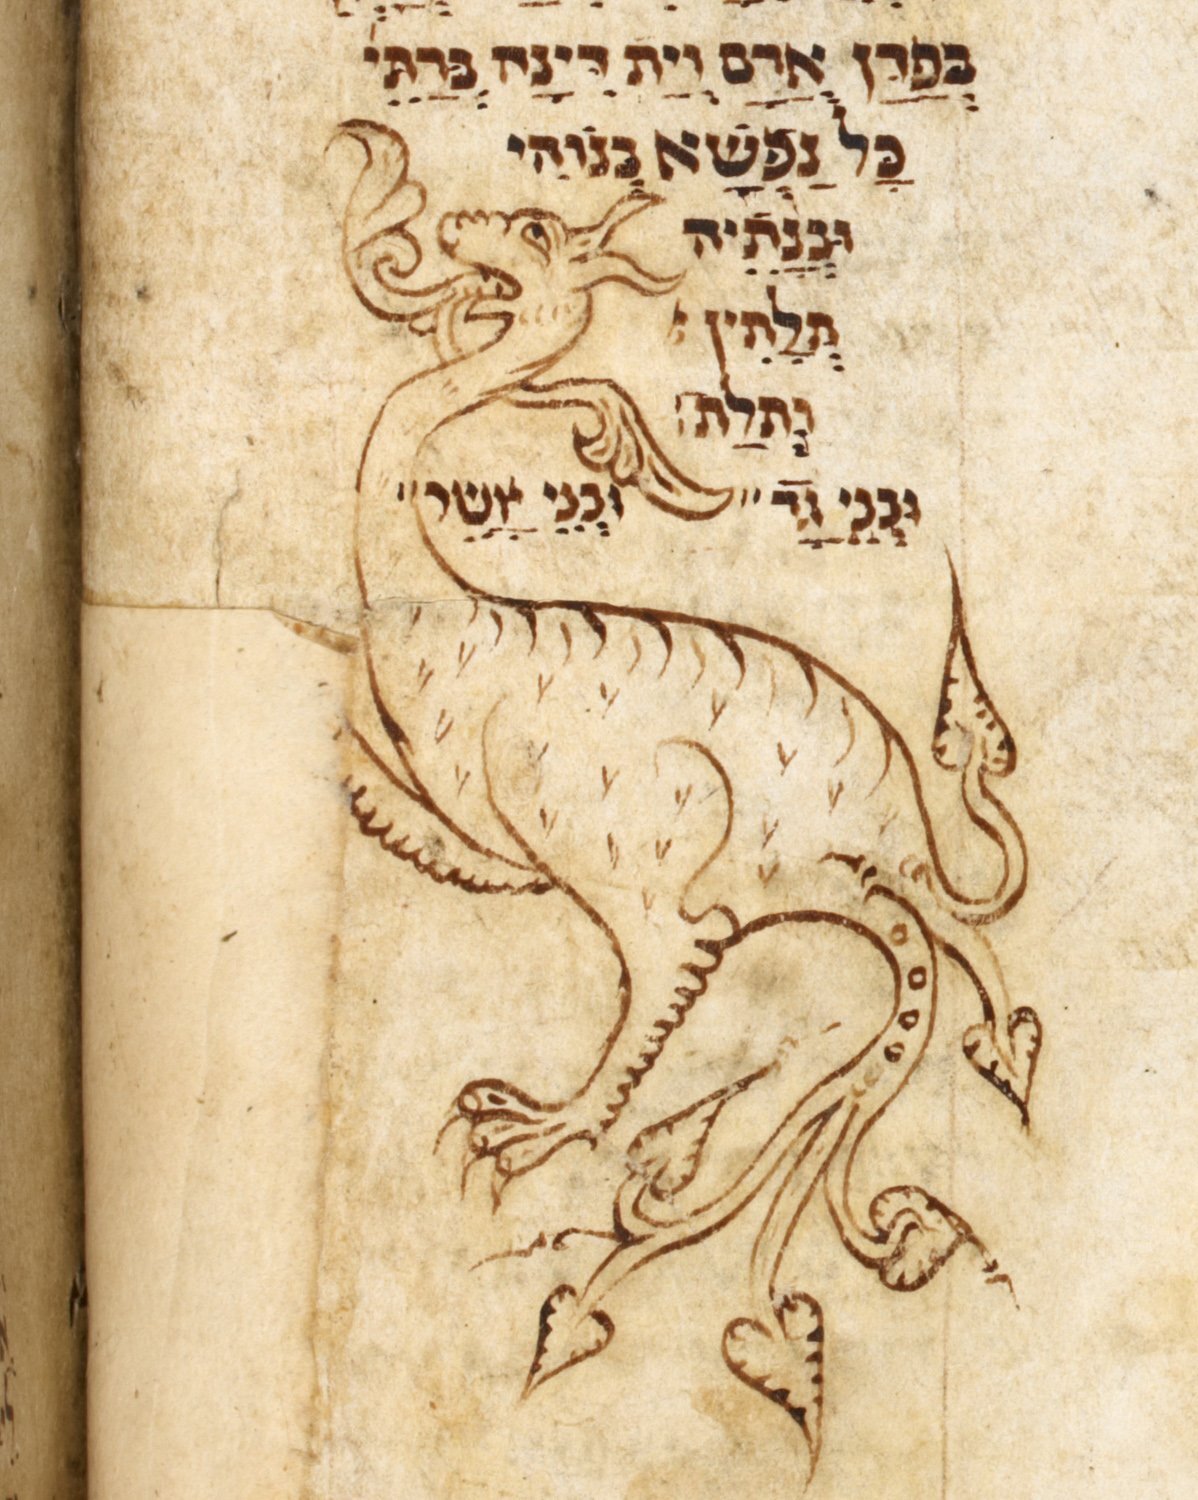 בפדן ארם וית דינה ברתי
כל נפשא בנוהי
ובנתיה
תלתין
ותלת
ובני גד״ ובני אשר״